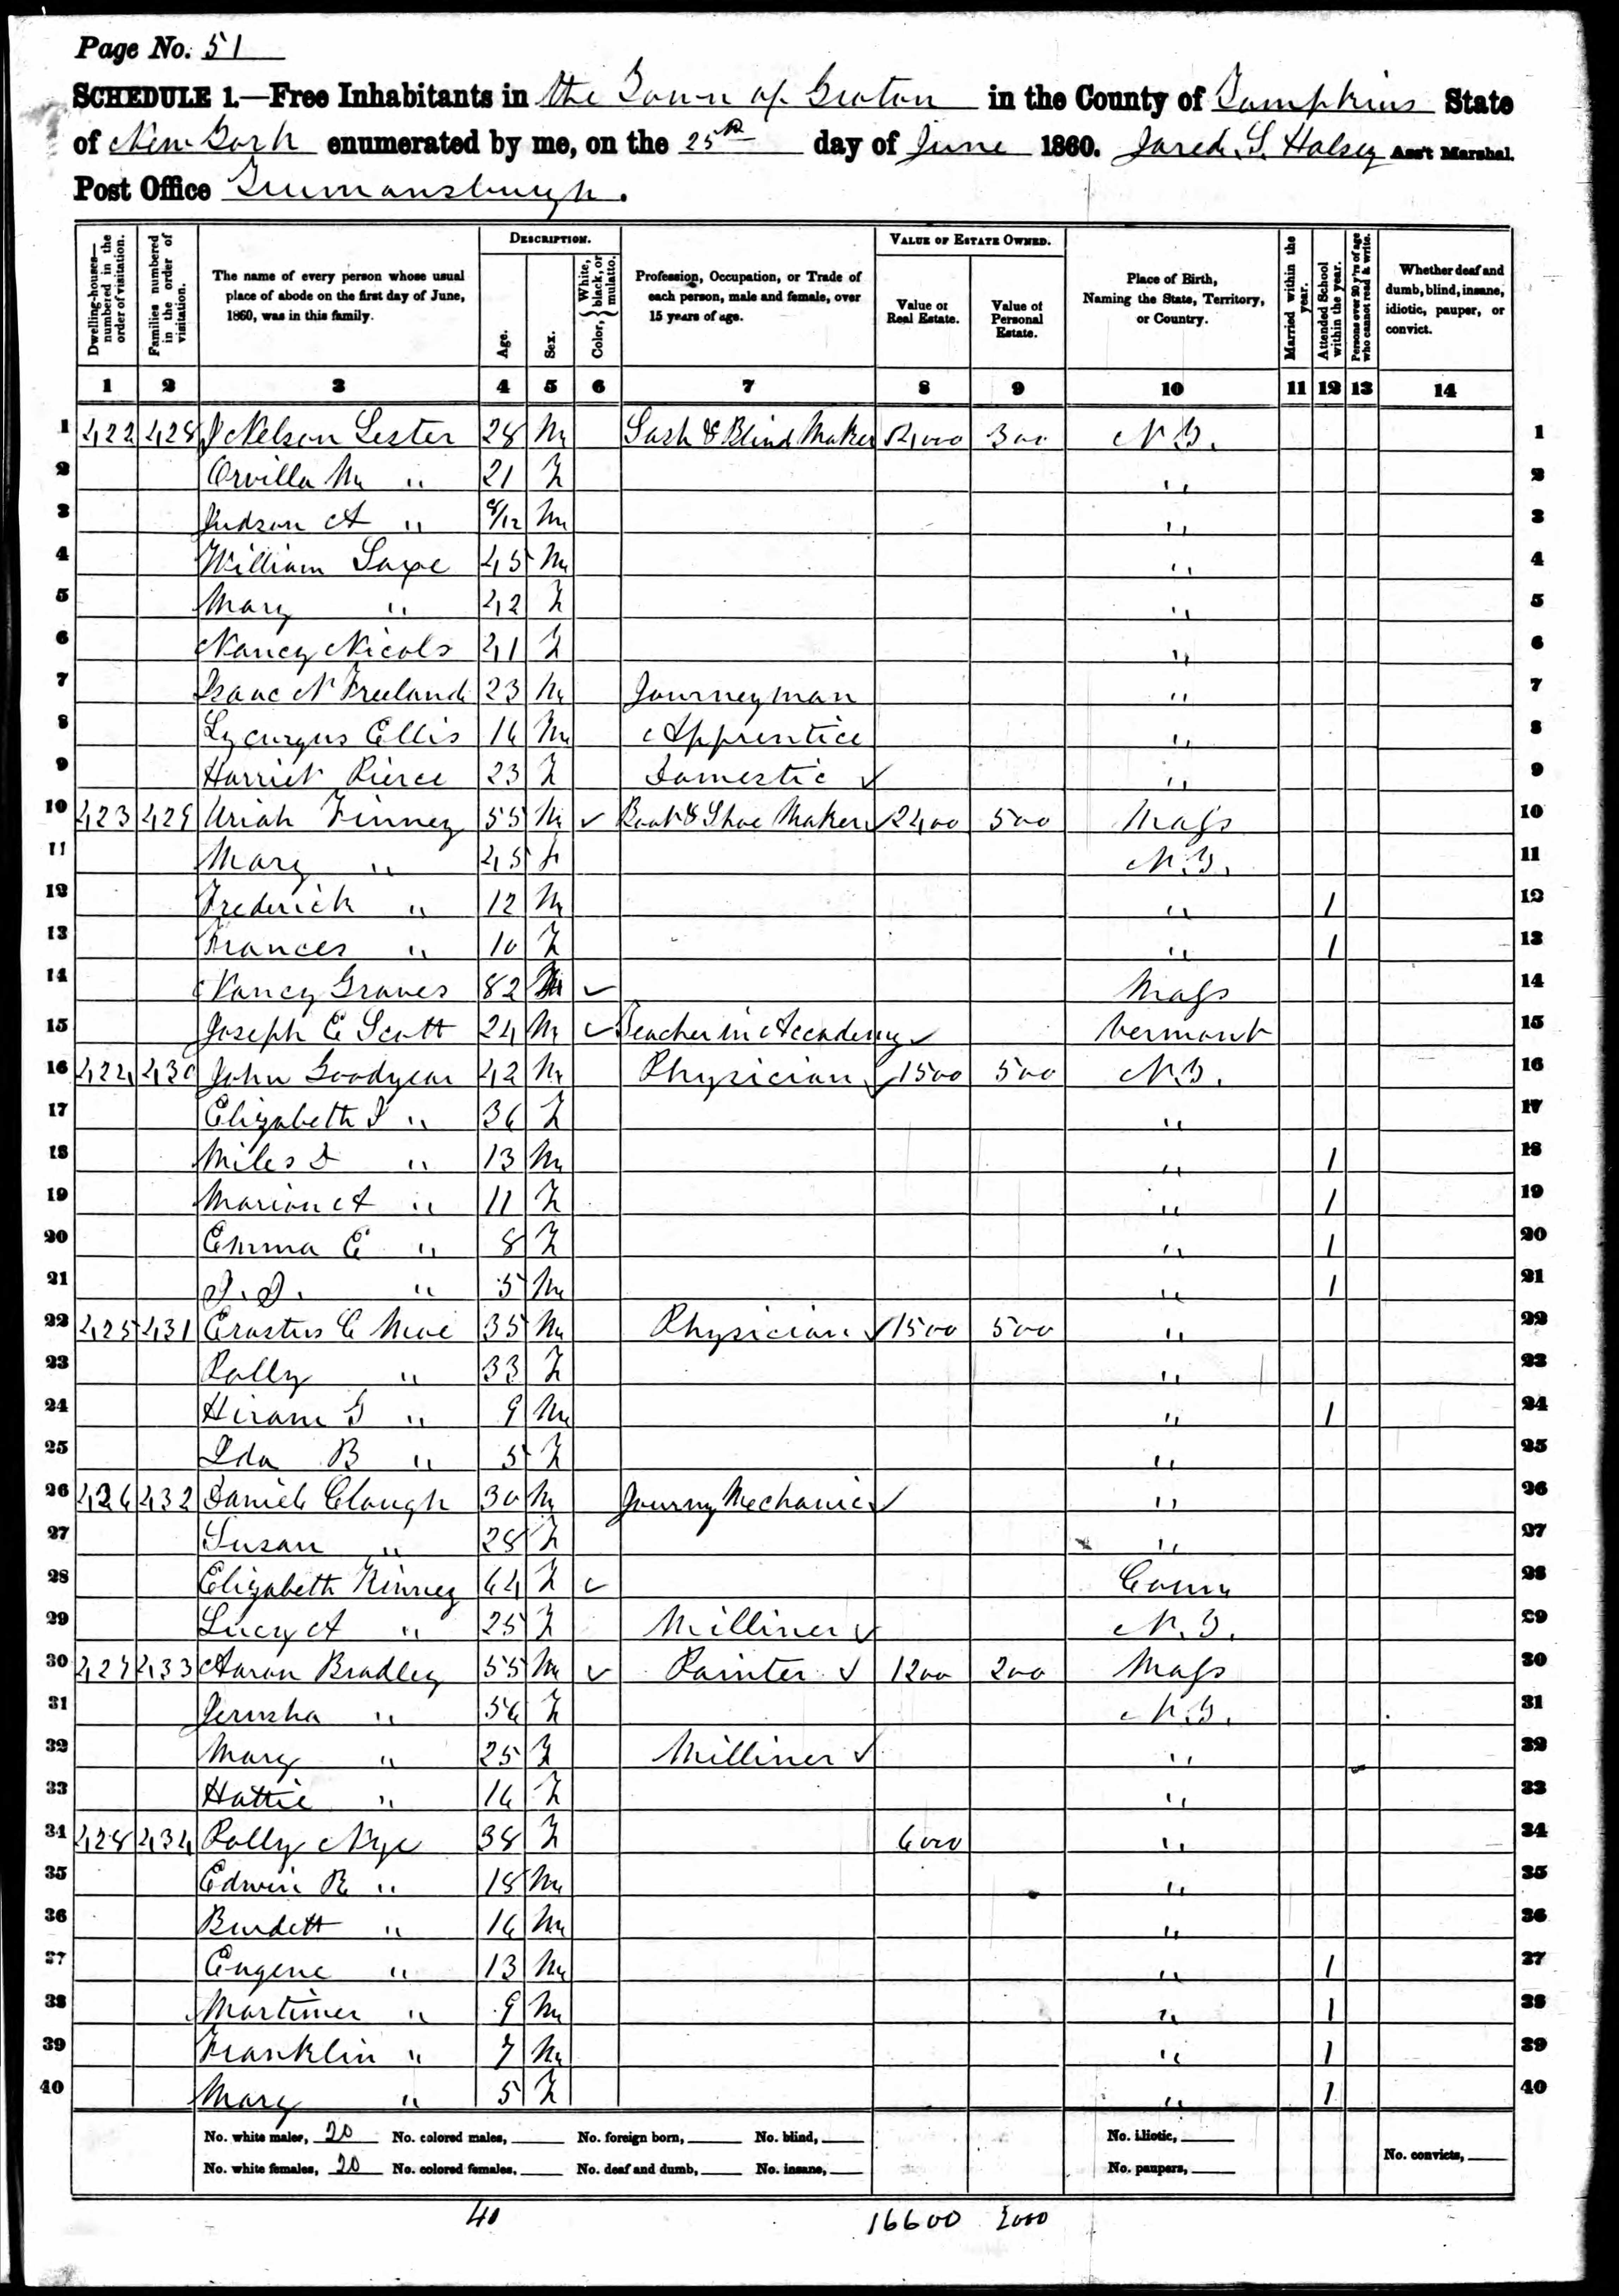 Page No. 51
SCHEDULE 1.—Free Inhabitants in the Town of Groton in the County of Tompkins State
of New York enumerated by me, on the 25th day of June 1860. Jared S. Halsey Ass't Marshal.
Post Office Trumansburgh.
Dwelling-houses—numbered in the order of visitation. Families numbered in the order of visitation. The name of every person whose usual place of abode on the first day of June, 1860, was in this family. DESCRIPTION. Age. Sex. Color, White, black, or mulatto. Profession, Occupation, or Trade of each person, male and female, over 15 years of age. VALUE OF ESTATE OWNED. Value of Real Estate. Value of Personal Estate. Place of Birth, Naming the State, Territory, or Country. Married within the year. Attended School within the year. Persons over 20 y'rs of age who cannot read & write. Whether deaf and dumb, blind, insane, idiotic, pauper, or convict.
1 2 3 4 5 6 7 8 9 10 11 12 13 14
1 422 428 J Nelson Lester 28 M Sash & Blind Maker 4000 300 N.Y. 1
2 Orvilla M " 21 F " 2
3 Judson A " 8/12 M " 3
4 William Saxe 45 M " 4
5 Mary " 42 F " 5
6 Nancy Nicols 41 F " 6
7 Isaac N Freeland 23 M Journeyman " 7
8 Lycurgus Ellis 16 M Apprentice " 8
9 Harriet Pierce 23 F Domestic " 9
10 423 429 Uriah Finney 55 M Boot & Shoe Maker 2400 500 Mass 10
11 Mary " 45 F N.Y. 11
12 Frederick " 12 M " 1 12
13 Frances " 10 F " 1 13
14 Nancy Graves 82 Mass 14
15 Joseph E Scott 24 M Teacher in Accademy Vermont 15
16 424 430 John Goodyear 42 M Physician 1500 500 N.Y. 16
17 Elizabeth " 36 F " 17
18 Miles D " 13 M " 1 18
19 Marion A " 11 F " 1 19
20 Emma E " 8 F " 1 20
21 " 5 M " 1 21
22 425 431 Erastus C Moe 35 M Physician 1500 500 " 22
23 Polly " 33 F " 23
24 Hiram G " 9 M " 1 24
25 Ida B " 5 F " 25
26 426 432 Daniel Clough 30 M Journy Mechanic " 26
27 Susan " 28 F " 27
28 Elizabeth Kinney 64 F Conn 28
29 Lucy A " 25 F Milliner N.Y. 29
30 427 433 Aaron Bradley 55 M Painter 1200 200 Mass 30
31 Jerusha " 56 F N.Y. 31
32 Mary " 25 F Milliner " 32
33 Hattie " 16 F " 33
34 428 434 Polly Nye 38 F 6000 " 34
35 Edwin R " 18 M " 35
36 Burdett " 16 M " 36
37 Eugene " 13 M " 1 37
38 Mortimer " 9 M " 1 38
39 Franklin " 7 M " 1 39
40 Mary " 5 F " 1 40
No. white males, 20 No. colored males, No. foreign born, No. blind, No. idiotic, No. convicts,
No. white females, 20 No. colored females, No. deaf and dumb, No. insane, No. paupers,
40 16600 2000